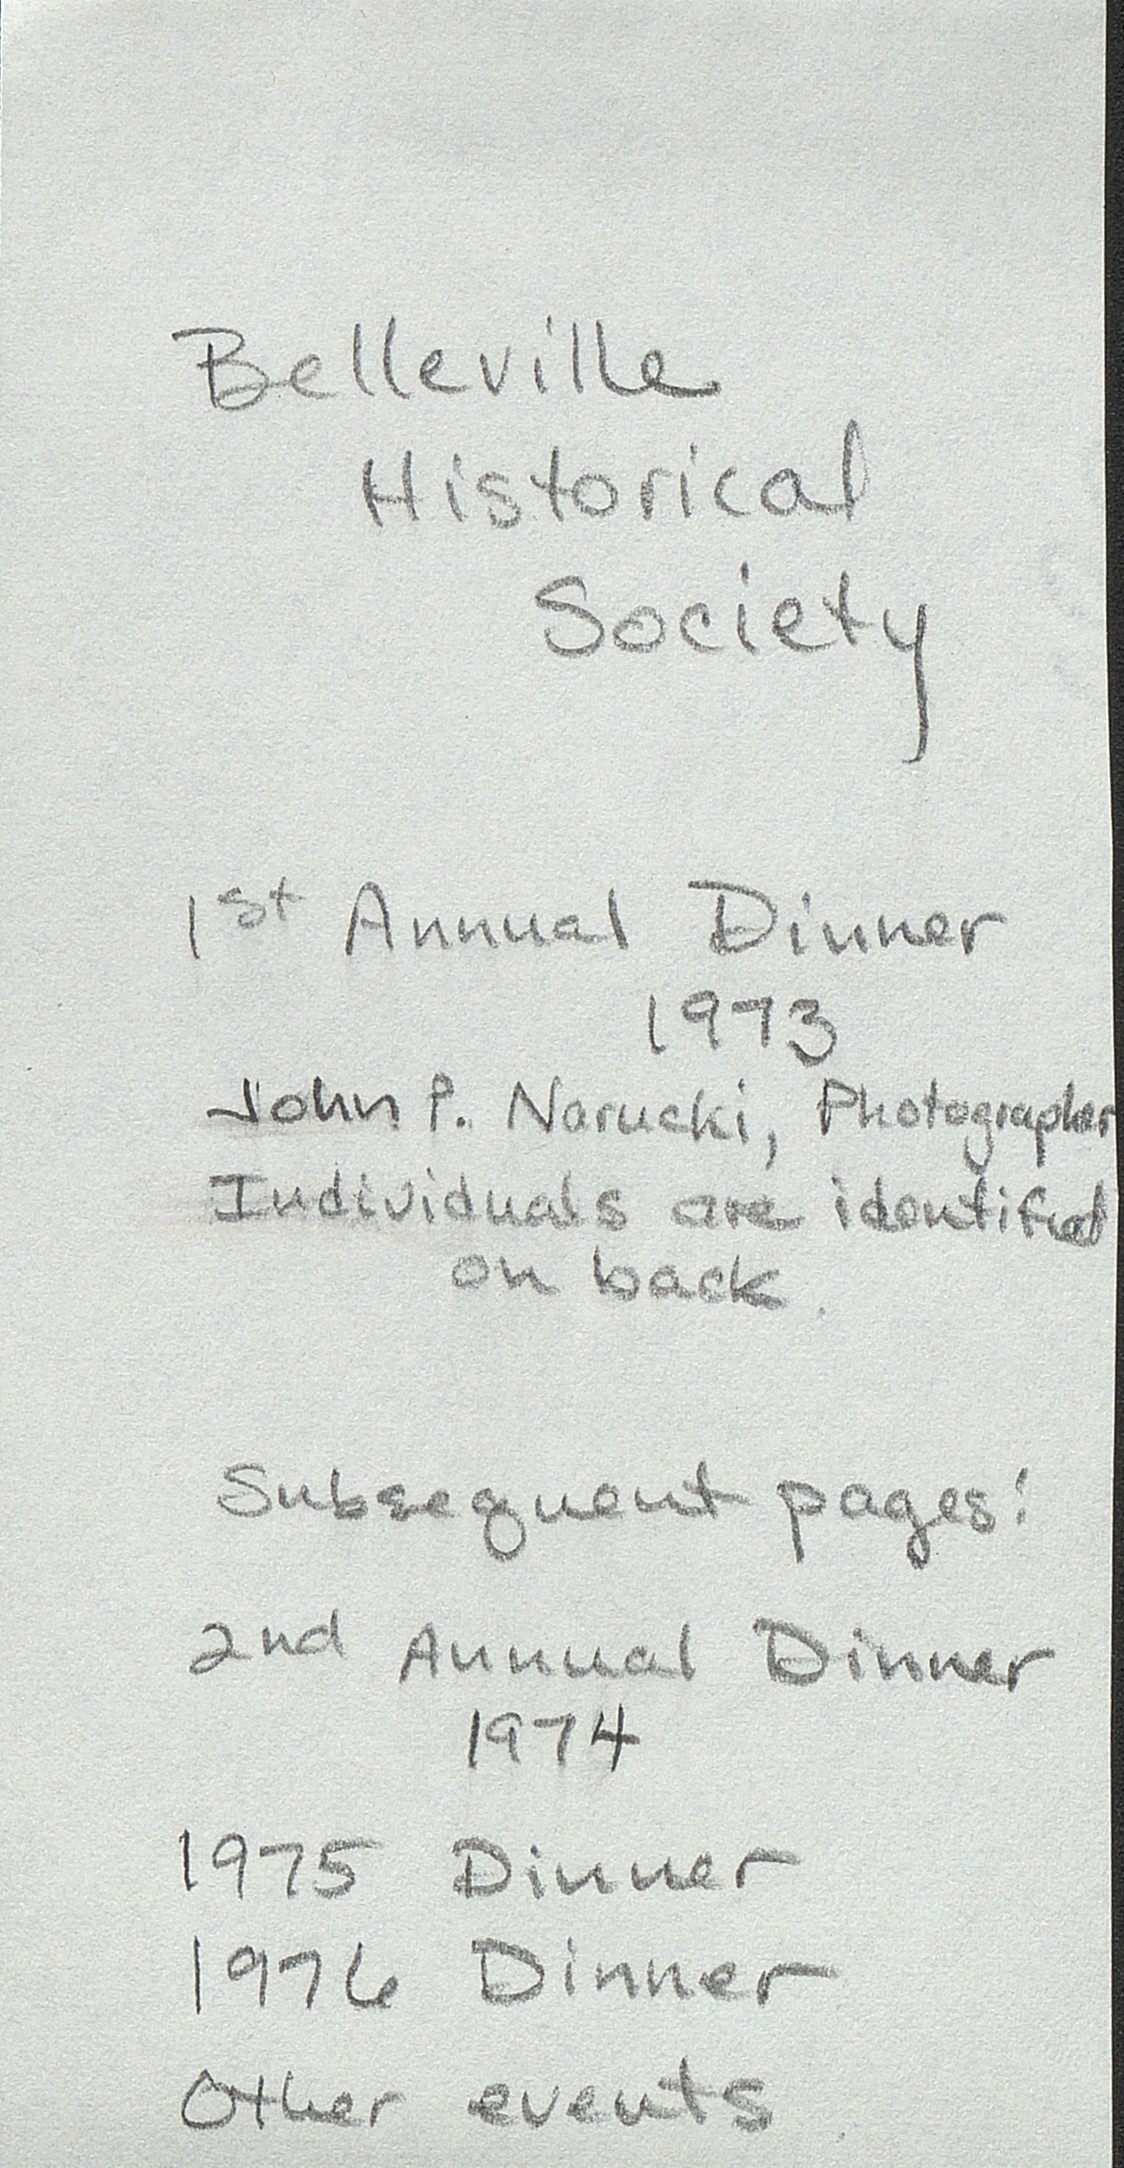 Belleville
Historical
Society
1st Annual Dinner
1973
John P. Narucki, Photographer
Individuals are identified
on back.
Subsequent pages:
2nd Annual Dinner
1974
1975 Dinner
1976 Dinner
Other events